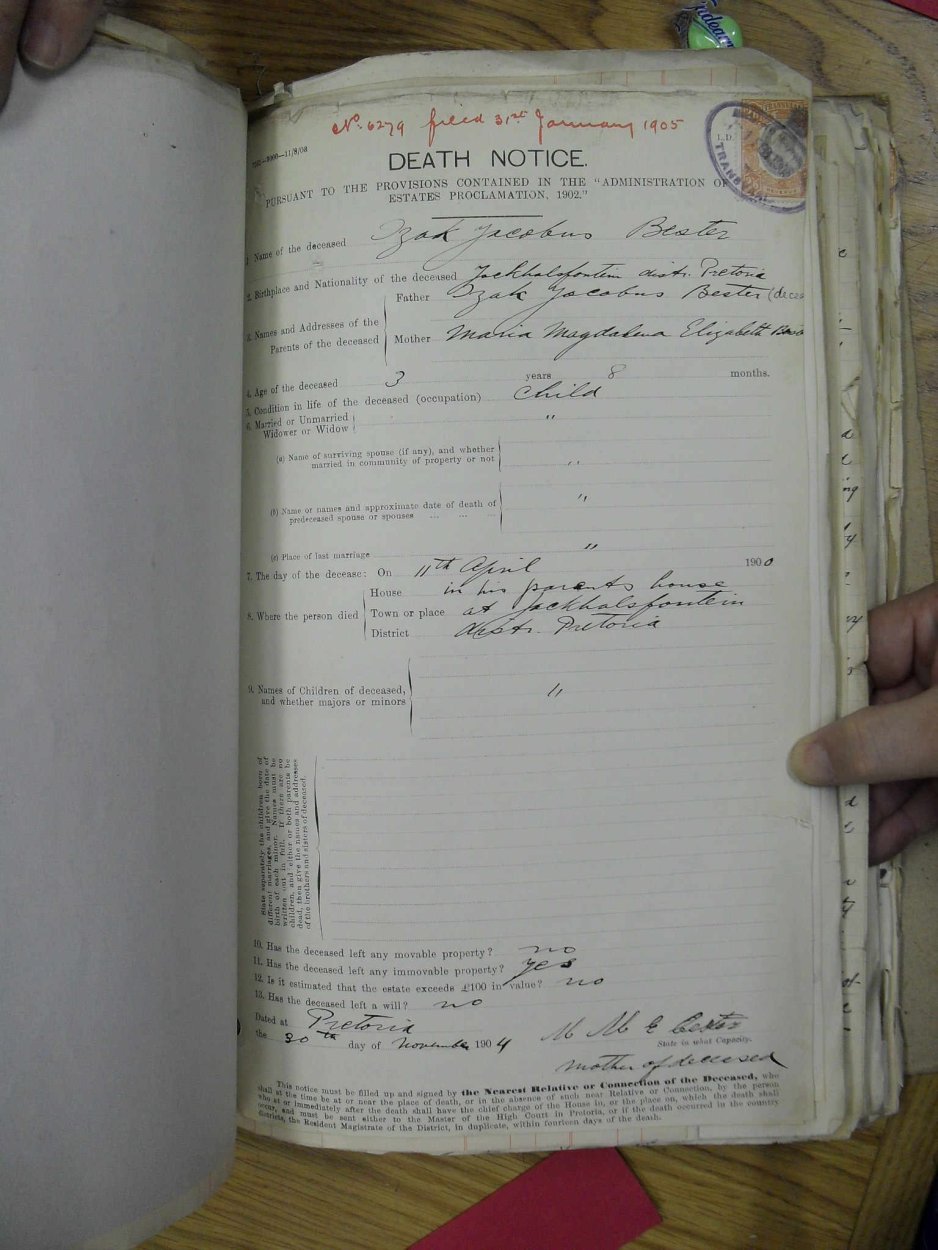 No. 6279 filed 31st January 1905
—3000—11/8/03
DEATH NOTICE.
PURSUANT TO THE PROVISIONS CONTAINED IN THE "ADMINISTRATION OF
ESTATES PROCLAMATION, 1902."
1. Name of the deceased Izak Jacobus Bester
2. Birthplace and Nationality of the deceased Jackhalsfontein distr. Pretoria
3. Names and Addresses of the Parents of the deceased
Father Izak Jacobus Bester (deces
Mother Maria Magdalena Elizabeth
4. Age of the deceased 3 years 8 months.
5. Condition in life of the deceased (occupation) child
6. Married or Unmarried
Widower or Widow "
(a) Name of surviving spouse (if any), and whether
married in community of property or not "
(b) Name or names and approximate date of death of
predeceased spouse or spouses ... ... ... "
(c) Place of last marriage "
7. The day of the decease: On 11th April 1900
8. Where the person died
House in his parents house
Town or place at Jackhalsfontein
District distr. Pretoria
9. Names of Children of deceased,
and whether majors or minors "
State separately the children born of
different marriages, and give the date of
birth of each minor. Names must be
written out in full. If there are no
children, and either or both parents be
dead, then give the names and addresses
of the brothers and sisters of deceased.
10. Has the deceased left any movable property? no
11. Has the deceased left any immovable property? yes
12. Is it estimated that the estate exceeds £100 in value? no
13. Has the deceased left a will? no
Dated at Pretoria
the 30th day of November 1904 M M E Bester
State in what Capacity.
mother of deceased
This notice must be filled up and signed by the Nearest Relative or Connection of the Deceased, who
shall at the time be at or near the place of death, or in the absence of such near Relative or Connection, by the person
who at or immediately after the death shall have the chief charge of the House in, or the place on, which the death shall
occur, and must be sent either to the Master of the High Court in Pretoria, or if the death occurred in the country
districts, the Resident Magistrate of the District, in duplicate, within fourteen days of the death.